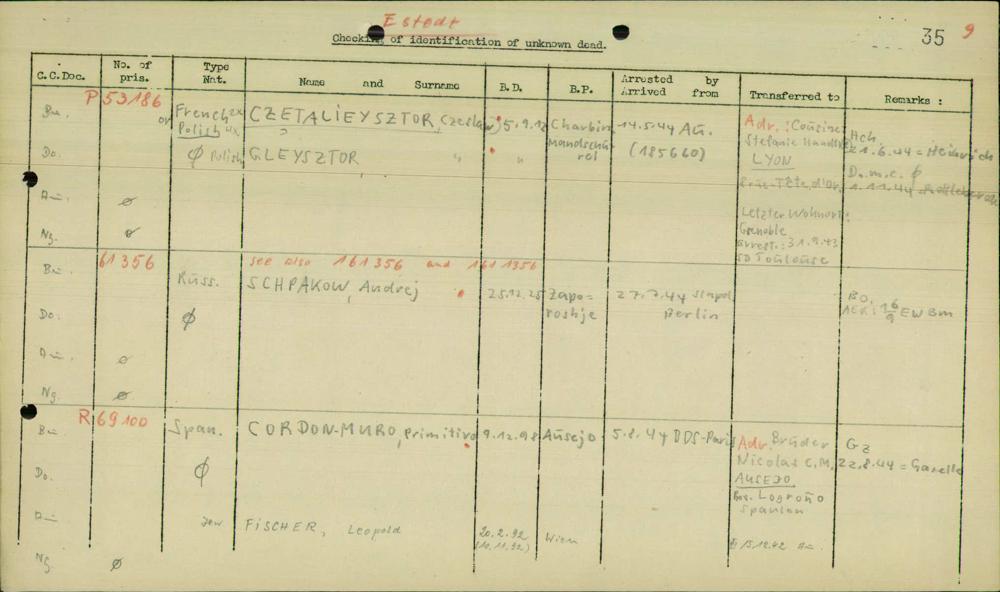 Estedt
Checking of identification of unknown dead.
35 9
C.C.Doc. No. of pris. Type Nat. Name and Surname B.D. B.P. Arrested by Arrived from Transferred to Remarks :
P 53186
Bu. or French Polish CZETALIEYSZTOR, (Czeslaw) 5.9.12 Charbin Mandschurei 14.5.44 Au. (185660)
Do. Ø Polish GLEYSZTOR " "
Au. Ø
Ng. Ø
Adr.: Cousine
Stefanie
LYON
Tête, d'Or
Letzter Wohnort:
Grenoble
arrest.: 31.9.43
SD Toulouse
Hch
21.6.44 = Heinrich
D.m.c. Ø
1.11.44
61356 see also 161356 and 1611356
Bu. Russ. SCHPAKOW, Andrej 25.12.25 Zaporoshje 27.7.44 Stapol Berlin
Do. Ø
Bo.
AEK: 16/9 EW Bm
Au. Ø
Ng. Ø
R 69100
Bu. Span. CORDON-MURO, Primitivo 9.12.98 Ausejo 5.8.44 BDS-Paris
Do. Ø
Adr. Bruder
Nicolas C.M.
AUSEJO
Bez. Logroño
Spanien
Gz
22.8.44 = Gazelle
Au. Jew FISCHER, Leopold 20.2.92 (10.11.92) Wien 15.12.42 Au.
Ng. Ø